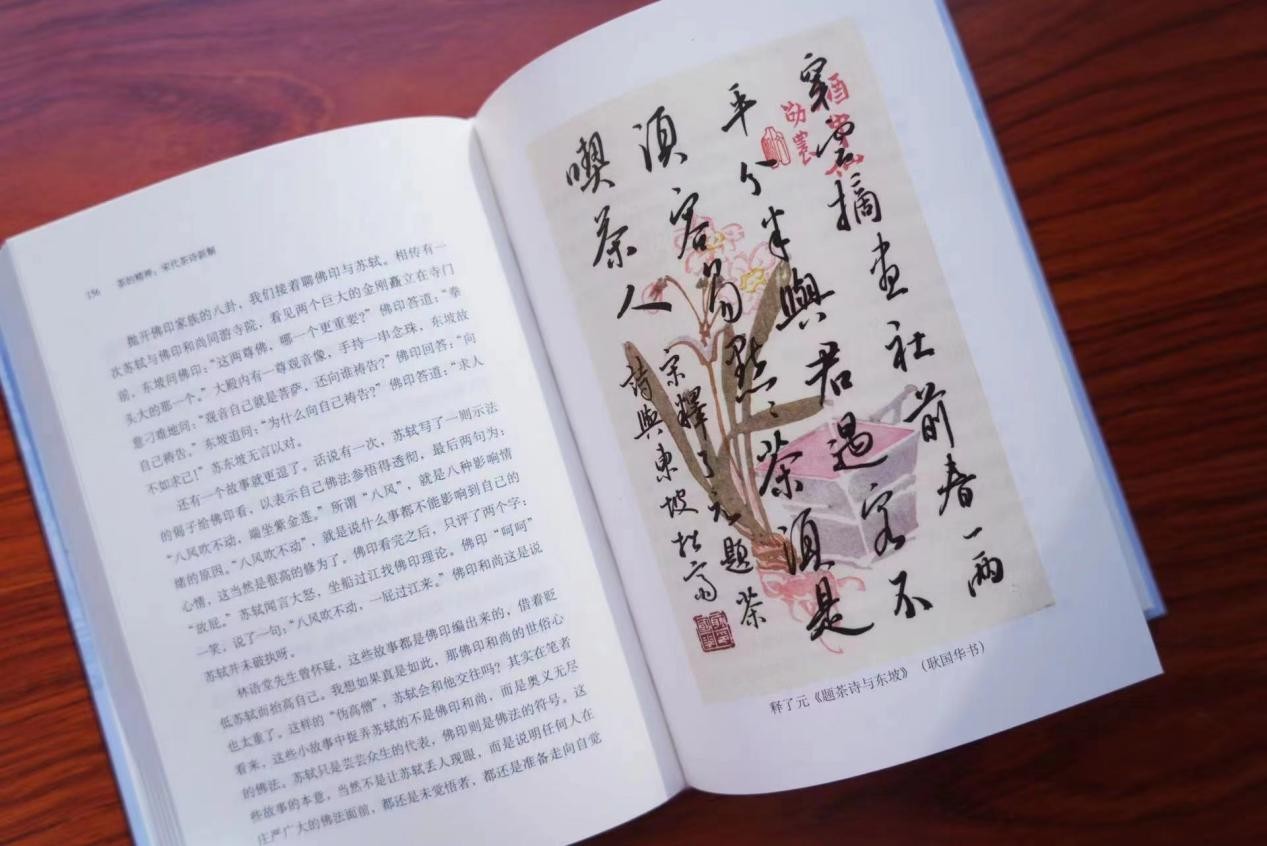 156 茶的精神：宋代茶诗新解
抛开佛印家族的八卦，我们接着聊佛印与苏轼。相传有一
次苏轼与佛印和尚同游寺院，看见两个巨大的金刚矗立在寺门
前，东坡问佛印：“这两尊佛，哪一个更重要？”佛印答道：“拳
头大的那一个。”大殿内有一尊观音像，手持一串念珠，东坡故
意刁难地问：“观音自己就是菩萨，还向谁祷告？”佛印回答：“向
自己祷告。”东坡追问：“为什么向自己祷告？”佛印答道：“求人
不如求己！”苏东坡无言以对。
还有一个故事就更逗了。话说有一次，苏轼写了一则示法
的偈子给佛印看，以表示自己佛法参悟得透彻，最后两句为：
“八风吹不动，端坐紫金莲。”所谓“八风”，就是八种影响情
绪的原因。“八风吹不动”，就是说什么事都不能影响到自己的
心情，这当然是很高的修为了。佛印看完之后，只评了两个字：
“放屁。”苏轼闻言大怒，坐船过江找佛印理论。佛印“呵呵”
一笑，说了一句：“八风吹不动，一屁过江来。”佛印和尚这是说
苏轼并未破执呀。
林语堂先生曾怀疑，这些故事都是佛印编出来的，借着贬
低苏轼而抬高自己。我想如果真是如此，那佛印和尚的世俗心
也太重了。这样的“伤高僧”，苏轼会和他交往吗？其实在笔者
看来，这些小故事中捉弄苏轼的不是佛印和尚，而是奥义无尽
的佛法。苏轼只是芸芸众生的代表，佛印则是佛法的符号。这
些故事的本意，当然不是让苏轼丢人现眼，而是说明任何人在
庄严广大的佛法面前，都还是未觉悟者，都还是准备走向自觉
穿雲摘盡社前春一兩
平分半與君遇客不
須容易點〻茶須是
喫茶人
宋釋了元題茶
詩與東坡
释了元《题茶诗与东坡》（耿国华书）